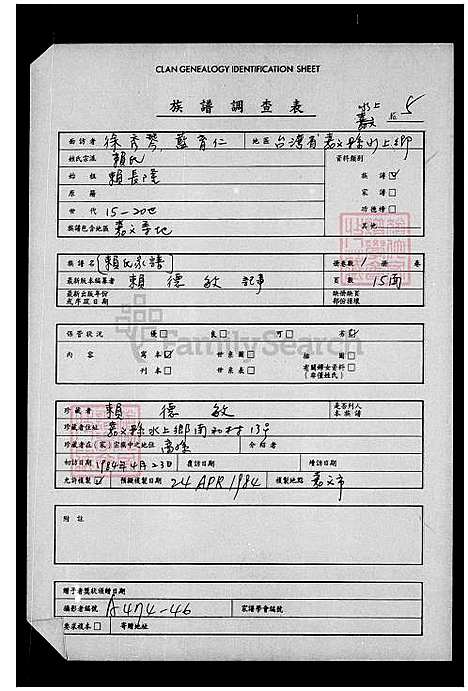 CLAN GENEALOGY IDENTIFICATION SHEET
族譜調查表
水上
嘉義 № 5
面訪者 徐彥琴 藍育仁 地區 台灣省嘉义縣水上鄉
姓氏宗派 賴氏 資料類別
始祖 賴長隆 族譜☑
原籍 家譜□
世代 15-20世 功德榜□
族譜包含地區 嘉义等地 其他
族譜名 (賴氏家譜) 冊卷數 冊 卷
最新版本編纂者 賴德敏 記事 頁數 15面
最新出版年份或序跋日期 缺掛缺頁部份損壞
保管狀況 □優 良□ 可□ 劣☑
內容 寫本☑ 世系圖□ 插圖□
刊本□ 世系表□ 有關婦女資料□(非僅姓氏)
珍藏者 賴德敏 是否列入本族譜
珍藏者住址 嘉义縣水上鄉南和村13号
珍藏者在(家)宗族中之地位 裔孫 介紹者
初訪日期 1984年4月23日 復訪日期 續訪日期
允許複製☑ 預擬複製日期 24 APR 1984 複製地點 嘉义市
附註
贈予者獎狀頒贈日期
攝影者編號 A474-46 家譜學會編號
要求複本□ 寄贈地址
FamilySearch